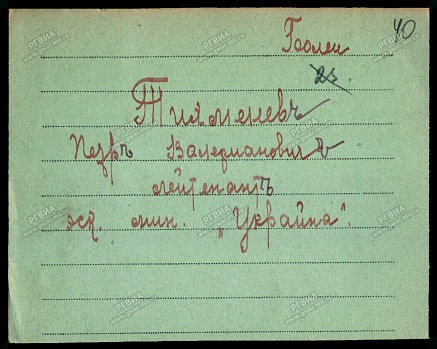 Болен 40
23.
Тихменевъ
Петръ Валерiановичъ
лейтенантъ
эск. мин. „Украйна“.